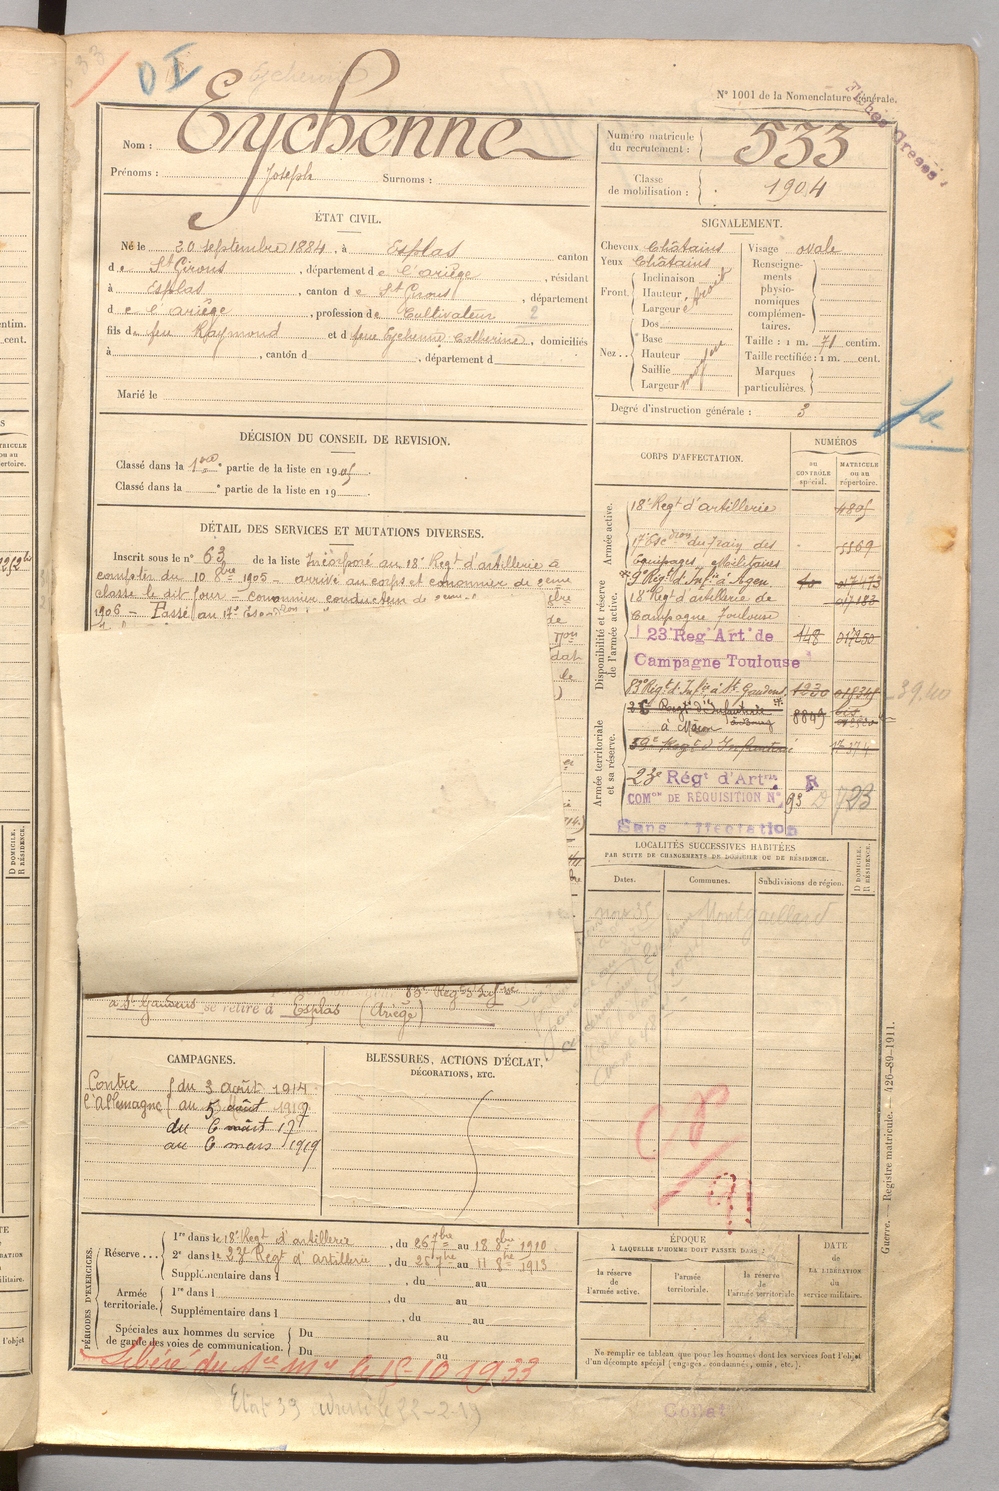 N° 1001 de la Nomenclature générale.
Nom : Eychenne
Prénoms : Joseph Surnoms :
Numéro matricule du recrutement : 533
Classe de mobilisation : 1904
ÉTAT CIVIL.
Né le 30 septembre 1884, à Esplas canton
de St Girons, département de l'ariège, résidant
à Esplas, canton de St Girons, département
de l'ariège, profession de Cultivateur
fils de feu Raymond et de feue Eychenne Catherine, domiciliés
à , canton d , département d
Marié le
SIGNALEMENT.
Cheveux Châtains
Yeux Châtains
Front. Inclinaison
Hauteur
Largeur
droit
Nez.. Dos
Base
Hauteur
Saillie
Largeur
moyen
Visage ovale
Renseignements physionomiques complémentaires.
Taille : 1 m. 71 centim.
Taille rectifiée : 1 m. cent.
Marques particulières.
Degré d'instruction générale : 3
DÉCISION DU CONSEIL DE REVISION.
Classé dans la 1ère partie de la liste en 1905.
Classé dans la ° partie de la liste en 19
DÉTAIL DES SERVICES ET MUTATIONS DIVERSES.
Inscrit sous le n° 63 de la liste Incorporé au 18e Regt d'artillerie à
compter du 10 8bre 1905 - arrivé au corps et canonnier de 2eme
classe le dit jour - canonnier conducteur de
1906 - Passé au 17e Escadron
83e Regt
à St Gaudens se retire à Esplas (Ariège)
CORPS D'AFFECTATION.
NUMÉROS
au CONTRÔLE spécial.
MATRICULE ou au répertoire.
Armée active.
18e Regt d'artillerie
17e Escdron du Train des
Equipages Militaires 5569
Disponibilité et réserve de l'armée active.
9e Régt d'Infie à Agen
18e Regt d'artillerie de
Campagne Toulouse
23 Reg Art de 448
Campagne Toulouse
83e Régt d'Infie à St Gaudens 1230
Armée territoriale et sa réserve.
à Mâcon 8849
59e Regt d'Infanterie
23e Régt d'Artie
COMon DE RÉQUISITION N° 93
Sans affectation
LOCALITÉS SUCCESSIVES HABITÉES
PAR SUITE DE CHANGEMENTS DE DOMICILE OU DE RÉSIDENCE.
Dates.
Communes.
Subdivisions de région.
D DOMICILE, R RÉSIDENCE.
Montgaillard
CAMPAGNES.
Contre l'Allemagne du 3 août 1914
au 5 août 1917
du 6 août 17
au 6 mars 1919
BLESSURES, ACTIONS D'ÉCLAT,
DÉCORATIONS, ETC.
PÉRIODES D'EXERCICES.
Réserve... 1re dans le 18e Regt d'artillerie, du 26 7bre au 18 8bre 1910
2e dans le 23e Regt d'artillerie, du 25 7bre au 11 8bre 1913
Supplémentaire dans l , du au
Armée territoriale. 1re dans l , du au
Supplémentaire dans l , du au
Spéciales aux hommes du service de garde des voies de communication.
Du au
Du au
ÉPOQUE
À LAQUELLE L'HOMME DOIT PASSER DANS :
la réserve de l'armée active.
l'armée territoriale.
la réserve de l'armée territoriale
DATE de LA LIBÉRATION du service militaire.
Ne remplir ce tableau que pour les hommes dont les services font l'objet
d'un décompte spécial (engagés, condamnés, omis, etc.).
Libéré du sce mre le 15-10 1933
Guerre. — Registre matricule. — 426-89-1911.